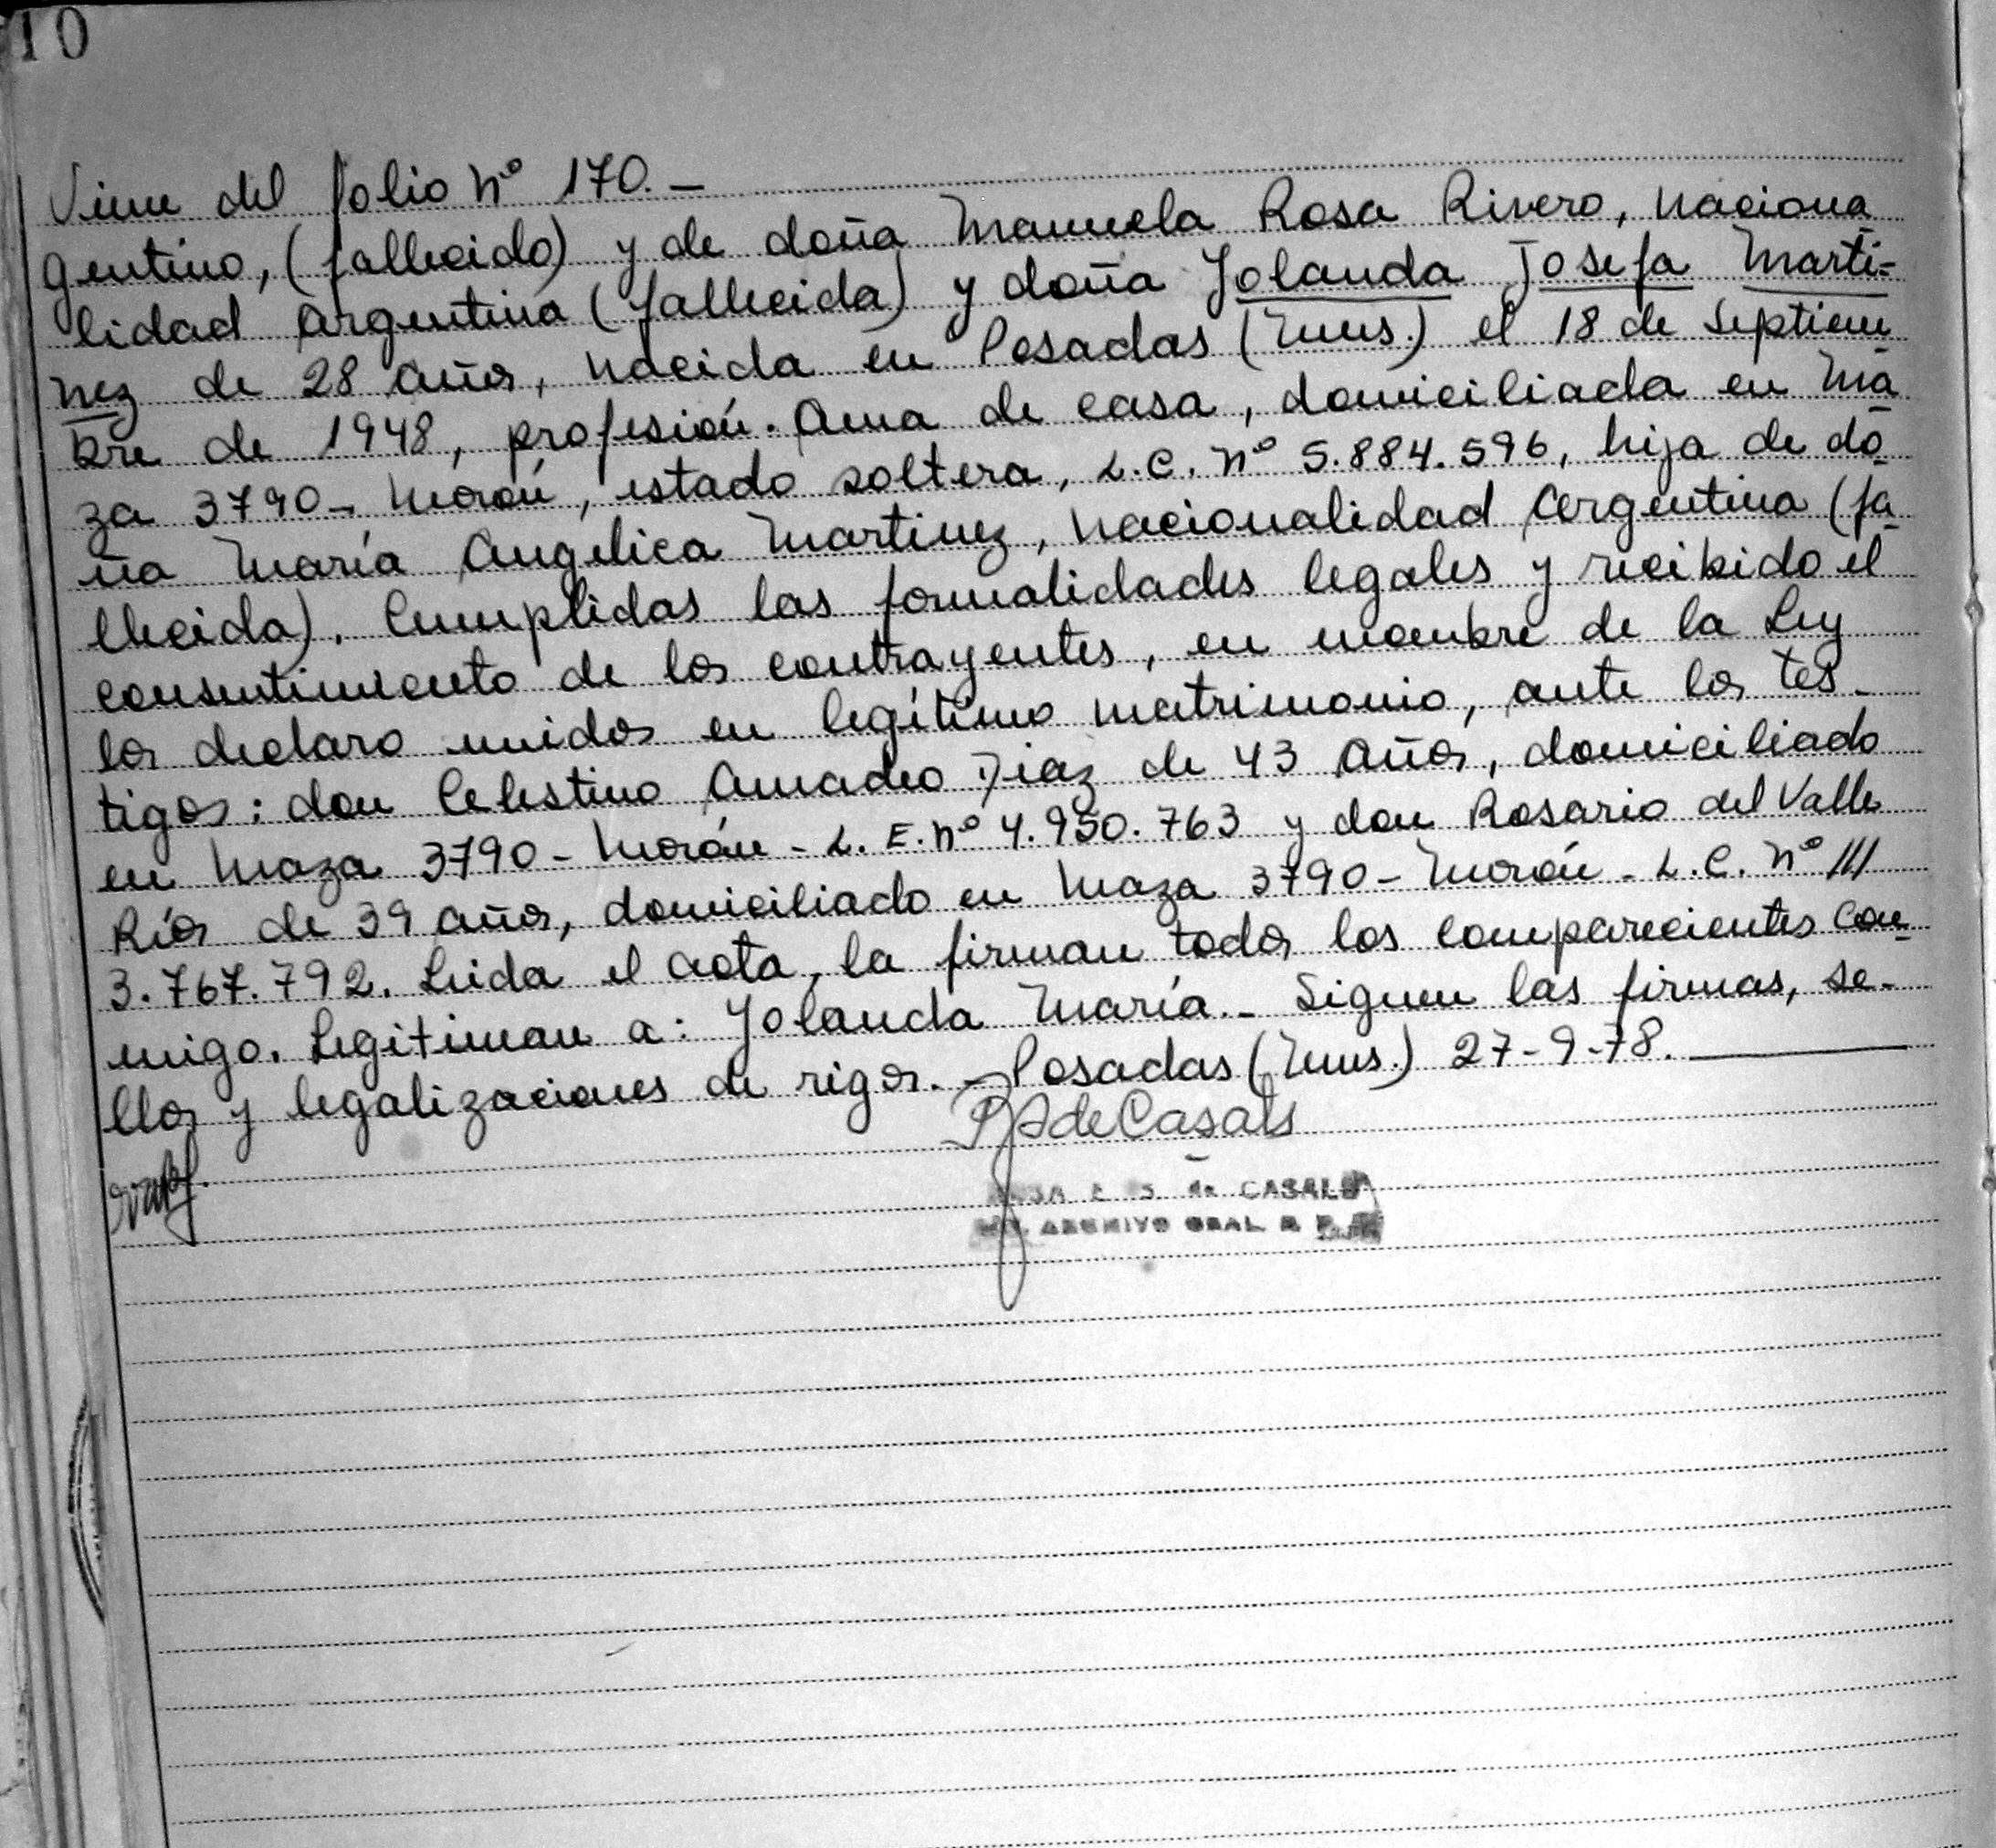 10
Viene del folio Nº 170.-
gentino, (fallecido) y de doña Manuela Rosa Rivero, naciona
lidad Argentina (fallecida) y doña Yolanda Josefa Marti-
nez de 28 años, nacida en Posadas (Mnes.) el 18 de Septiem
bre de 1948, profesión. Ama de casa, domiciliada en Ma
za 3790- Morón, estado soltera, L.C. Nº 5.884.596, hija de do
ña María Angelica Martinez, nacionalidad Argentina (fa
llecida). Cumplidas las formalidades legales y recibido el
consentimiento de los contrayentes, en nombre de la Ley
los declaro unidos en legítimo matrimonio, ante los tes-
tigos: don Celestino Amadeo Diaz de 43 años, domiciliado
en Maza 3790- Morón- L.E. Nº 4.950.763 y don Rosario del Valle
Ríos de 39 años, domiciliado en Maza 3790- Morón- L.C. Nº ///
3.767.792. Leida el acta, la firman todos los comparecientes con
migo. Legitiman a: Yolanda María.- Siguen las firmas, se-
llos y legalizaciones de rigor.- Posadas (Mnes.) 27-9-78.
de Casals
de CASALS
ARCHIVO GRAL